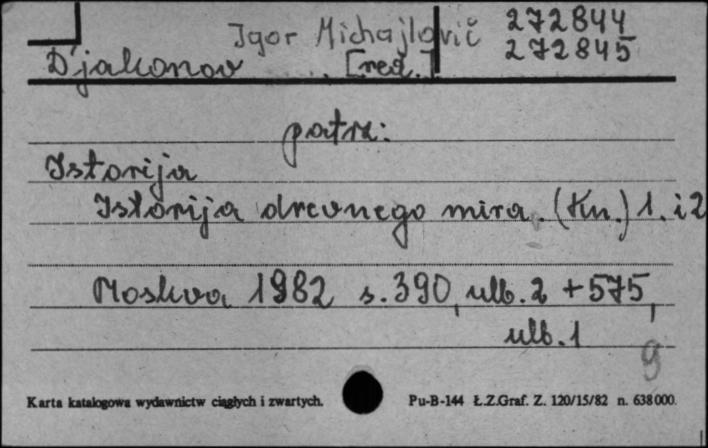 Igor Michajlovič 272844
272845
D'jakonov ..... [red.]
patrz:
Istorija
Istorija drevnego mira. (Kn.) 1. i 2
Moskva 1982 s. 390, ulb. 2 + 575,
ulb. 1
9
Karta katalogowa wydawnictw ciągłych i zwartych. Pu-B-144 Ł.Z.Graf. Z. 120/15/82 n. 638000.